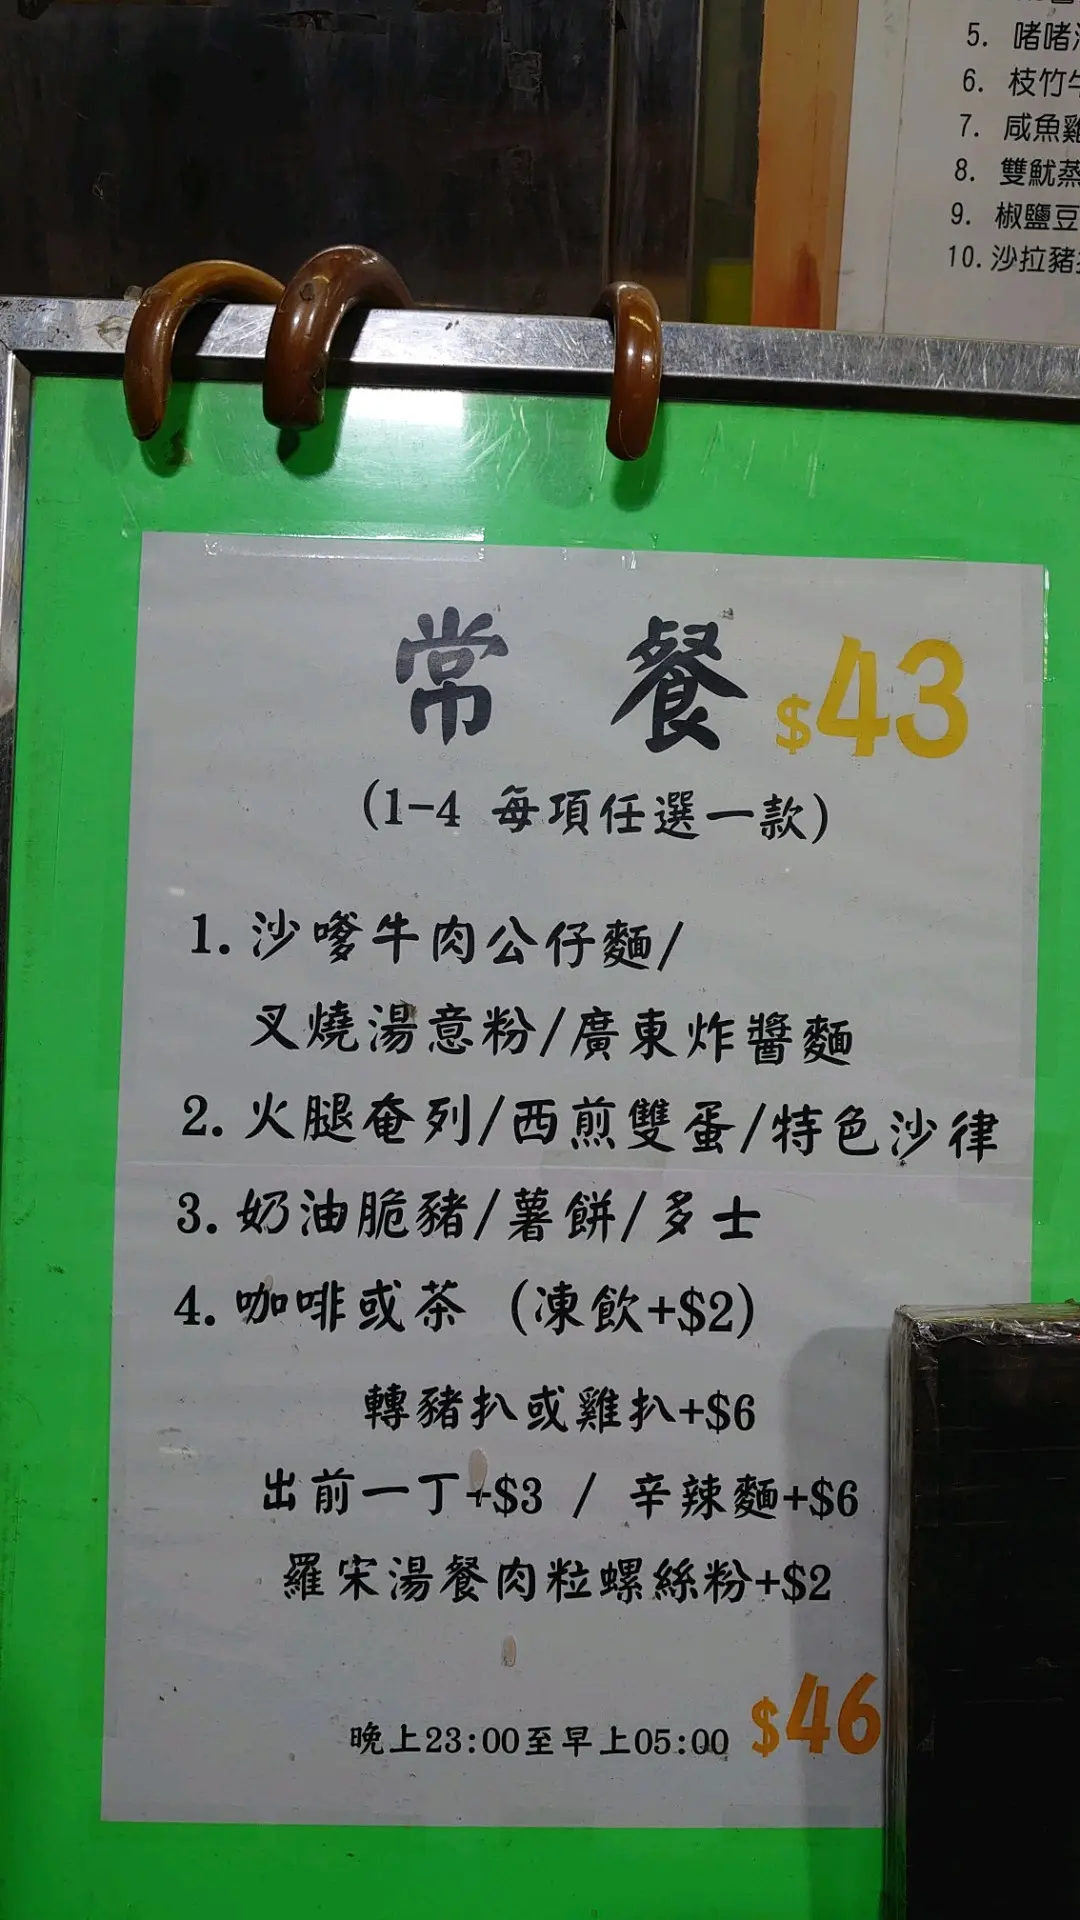 5. 啫啫
6. 枝竹牛
7. 咸魚雞
8. 雙魷蒸
9. 椒鹽豆
10. 沙拉豬
常 餐 $43
(1-4 每項任選一款)
1. 沙嗲牛肉公仔麵/
叉燒湯意粉/廣東炸醬麵
2. 火腿奄列/西煎雙蛋/特色沙律
3. 奶油脆豬/薯餅/多士
4. 咖啡或茶 (凍飲+$2)
轉豬扒或雞扒+$6
出前一丁+$3 / 辛辣麵+$6
羅宋湯餐肉粒螺絲粉+$2
晚上23:00至早上05:00 $46